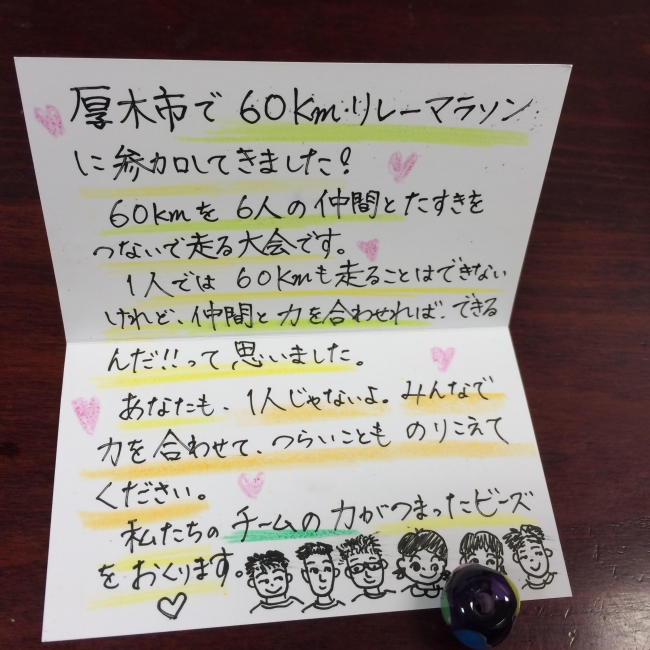 厚木市で 60Km・リレーマラソン
に参加してきました!
60kmを 6人の仲間とたすきを
つないで走る大会です。
1人では 60Kmも走ることはできない
けれど、仲間と力を合わせれば、できる
んだ!!って思いました。
あなたも、1人じゃないよ。みんなで
力を合わせて、つらいことも のりこえて
ください。
私たちの チームの力がつまったビーズ
をおくります。